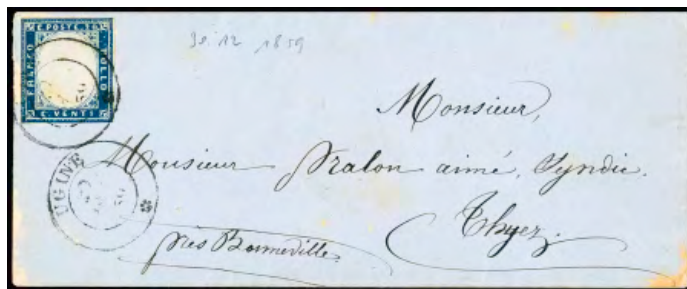 C. POSTE 20
FRANCO
BOLLO
C. VENTI
30 12 1859
Monsieur,
Monsieur Pralon aimé, Syndic.
Thyez.
près Bonneville
UGINE